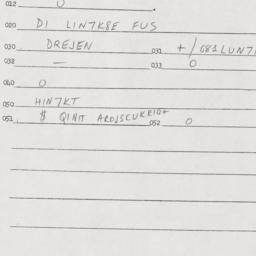 012 0
020 DI LIN7K8E FUS
030 DREJEN 031 + / G81LUN7
032 — 033 0
040 0
050 HIN7KT
051 $ QINIT AROJSCUKRIG+ 052 0